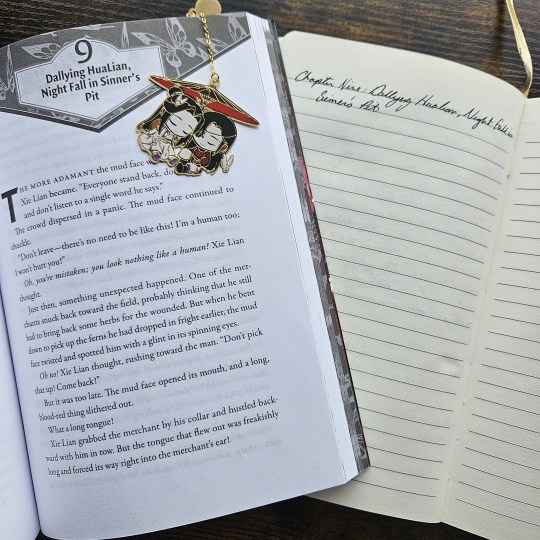 9
Dallying HuaLian,
Night Fall in Sinner's
Pit
THE MORE ADAMANT the mud face
Xie Lian became. "Everyone stand back, do
and don't listen to a single word he says."
The crowd dispersed in a panic. The mud face continued to
chuckle.
"Don't leave—there's no need to be like this! I'm a human too;
I won't hurt you!"
Oh, you're mistaken; you look nothing like a human! Xie Lian
thought.
Just then, something unexpected happened. One of the mer-
chants snuck back toward the field, probably thinking that he still
had to bring back some herbs for the wounded. But when he bent
down to pick up the ferns he had dropped in fright earlier, the mud
face twisted and spotted him with a glint in its spinning eyes.
Oh no! Xie Lian thought, rushing toward the man. "Don't pick
that up! Come back!"
But it was too late. The mud face opened its mouth, and a long,
blood-red thing slithered out.
What a long tongue!
Xie Lian grabbed the merchant by his collar and hustled back-
ward with him in tow. But the tongue that flew out was freakishly
long and forced its way right into the merchant's ear!
Chapter Nine: Dallying HuaLian, Night Fall in
Sinner's Pit